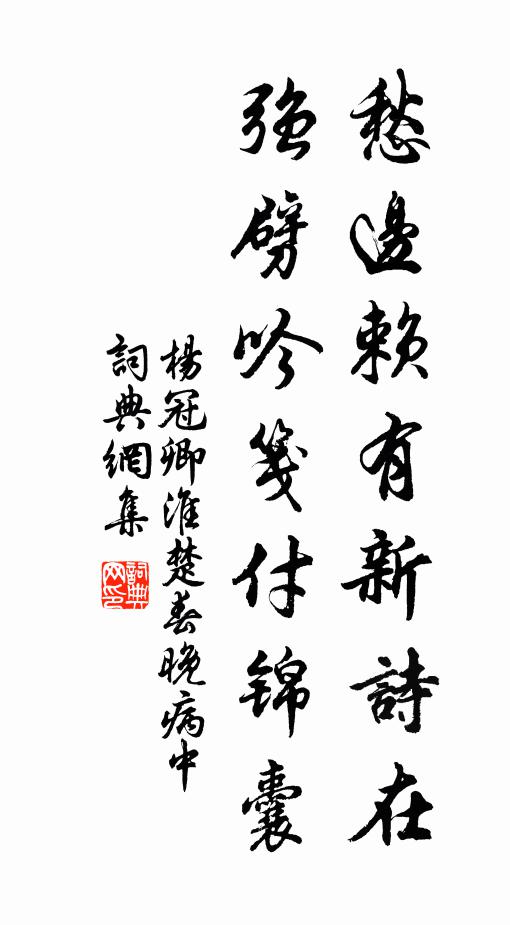 愁邊賴有新詩在
強劈吟箋付錦囊
楊冠卿淮楚春晚病中
詞典網集
詞典网印